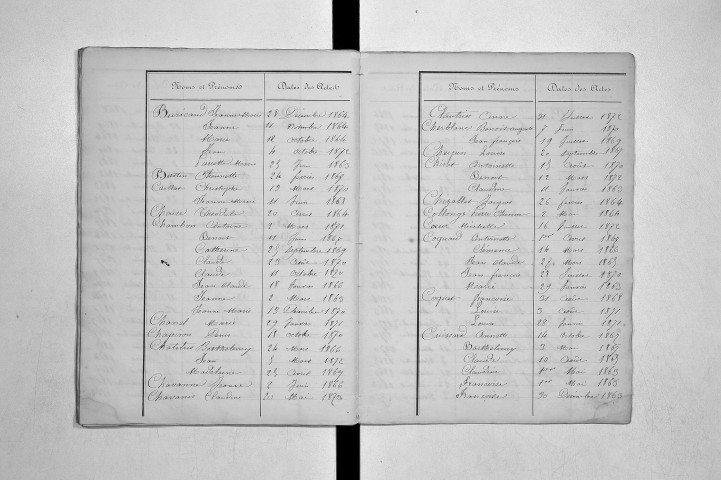 Noms et Prénoms Dates des Actes
Jeanne Marie 28 Décembre 1864
Jeanne 11 Novembre 1864
Marie 18 Octobre 1864
Jean 4 Octobre 1872
Marie 25 Juin 1863
24 Février 1865
Caillot Christophe 13 Mars 1870
Jeanne Marie 11 Juin 1868
20 Avril 1864
Chambon Antoine 2 Mars 1871
Benoit 11 Juin 1865
Catherine 25 Septembre 1869
Claude 23 Août 1870
Claude 11 Octobre 1870
Jean Claude 18 Janvier 1866
Jeanne 2 Mars 1863
Jeanne Marie 13 Décembre 1870
Chanel Marie 27 Janvier 1871
Chaperon Louis 18 Octobre 1870
Châtelus Barthélemy 24 Mars 1866
Jean 5 Mars 1872
Madeleine 25 Avril 1869
Chavanne 2 Juin 1866
Chavanne Claudine 20 Mai 1873
Noms et Prénoms Dates des Actes
31 Juillet 1872
Cherblanc 7 Juin 1870
Jean François 19 Janvier 1869
Louise 20 Septembre 1865
Antoinette 15 Août 1870
Benoit 12 Mars 1872
Claudine 11 Janvier 1863
Jacques 26 Février 1864
Collonge Pierre 2 Mai 1864
Coeur 16 Juillet 1872
Cognard Antoinette 1er Avril 1865
14 Mars 1866
Jean Claude 27 Mars 1865
Jean François 28 Juillet 1870
Marie 29 Janvier 1863
Coquet Françoise 31 Août 1868
Louise 3 Août 1871
Louis 28 Janvier 1871
14 Octobre 1865
Barthélemy 3 Mai 1865
Claude 10 Août 1865
Claudine 1er Mai 1863
Françoise 1er Mai 1865
Françoise 30 Décembre 1863